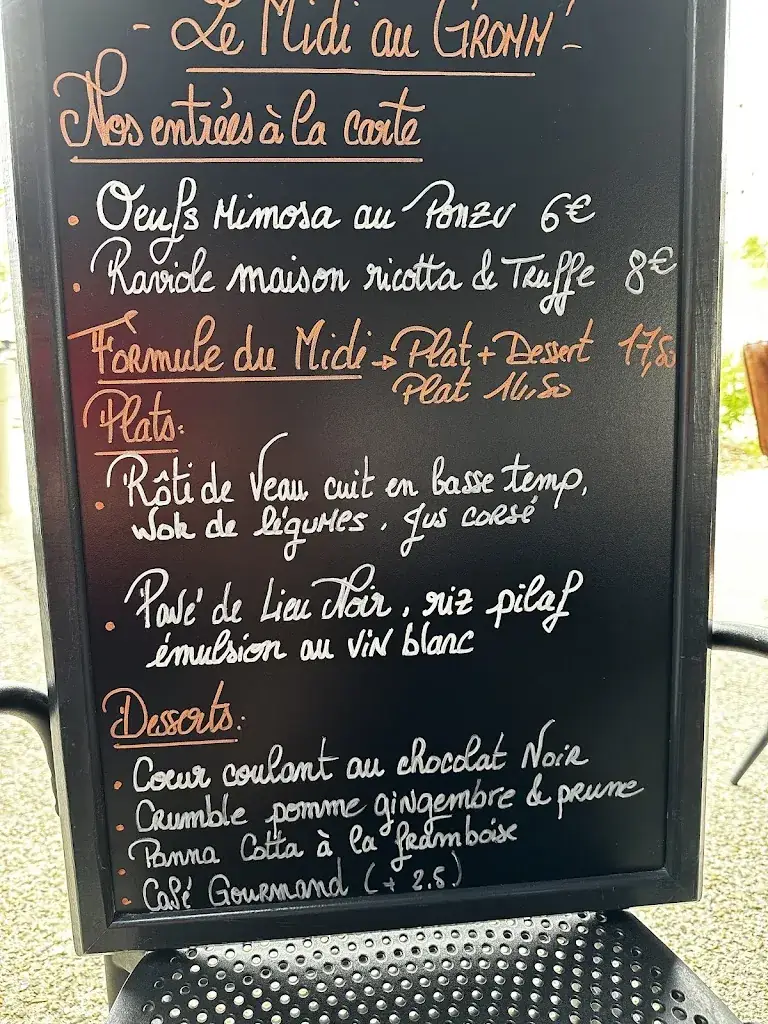 - Le Midi au GRONN -
Nos entrées à la carte
• Oeufs Mimosa au Ponzu 6€
• Raviole maison ricotta & Truffe 8€
Formule du Midi → Plat + Dessert 17,50
Plat 14,50
Plats:
• Rôti de Veau cuit en basse temp,
Wok de légumes, Jus corsé
• Pavé de Lieu Noir, riz pilaf
émulsion au vin blanc
Desserts:
• Coeur coulant au chocolat Noir
• Crumble pomme gingembre & prune
• Panna Cotta à la framboise
• Café Gourmand (+ 2,5)